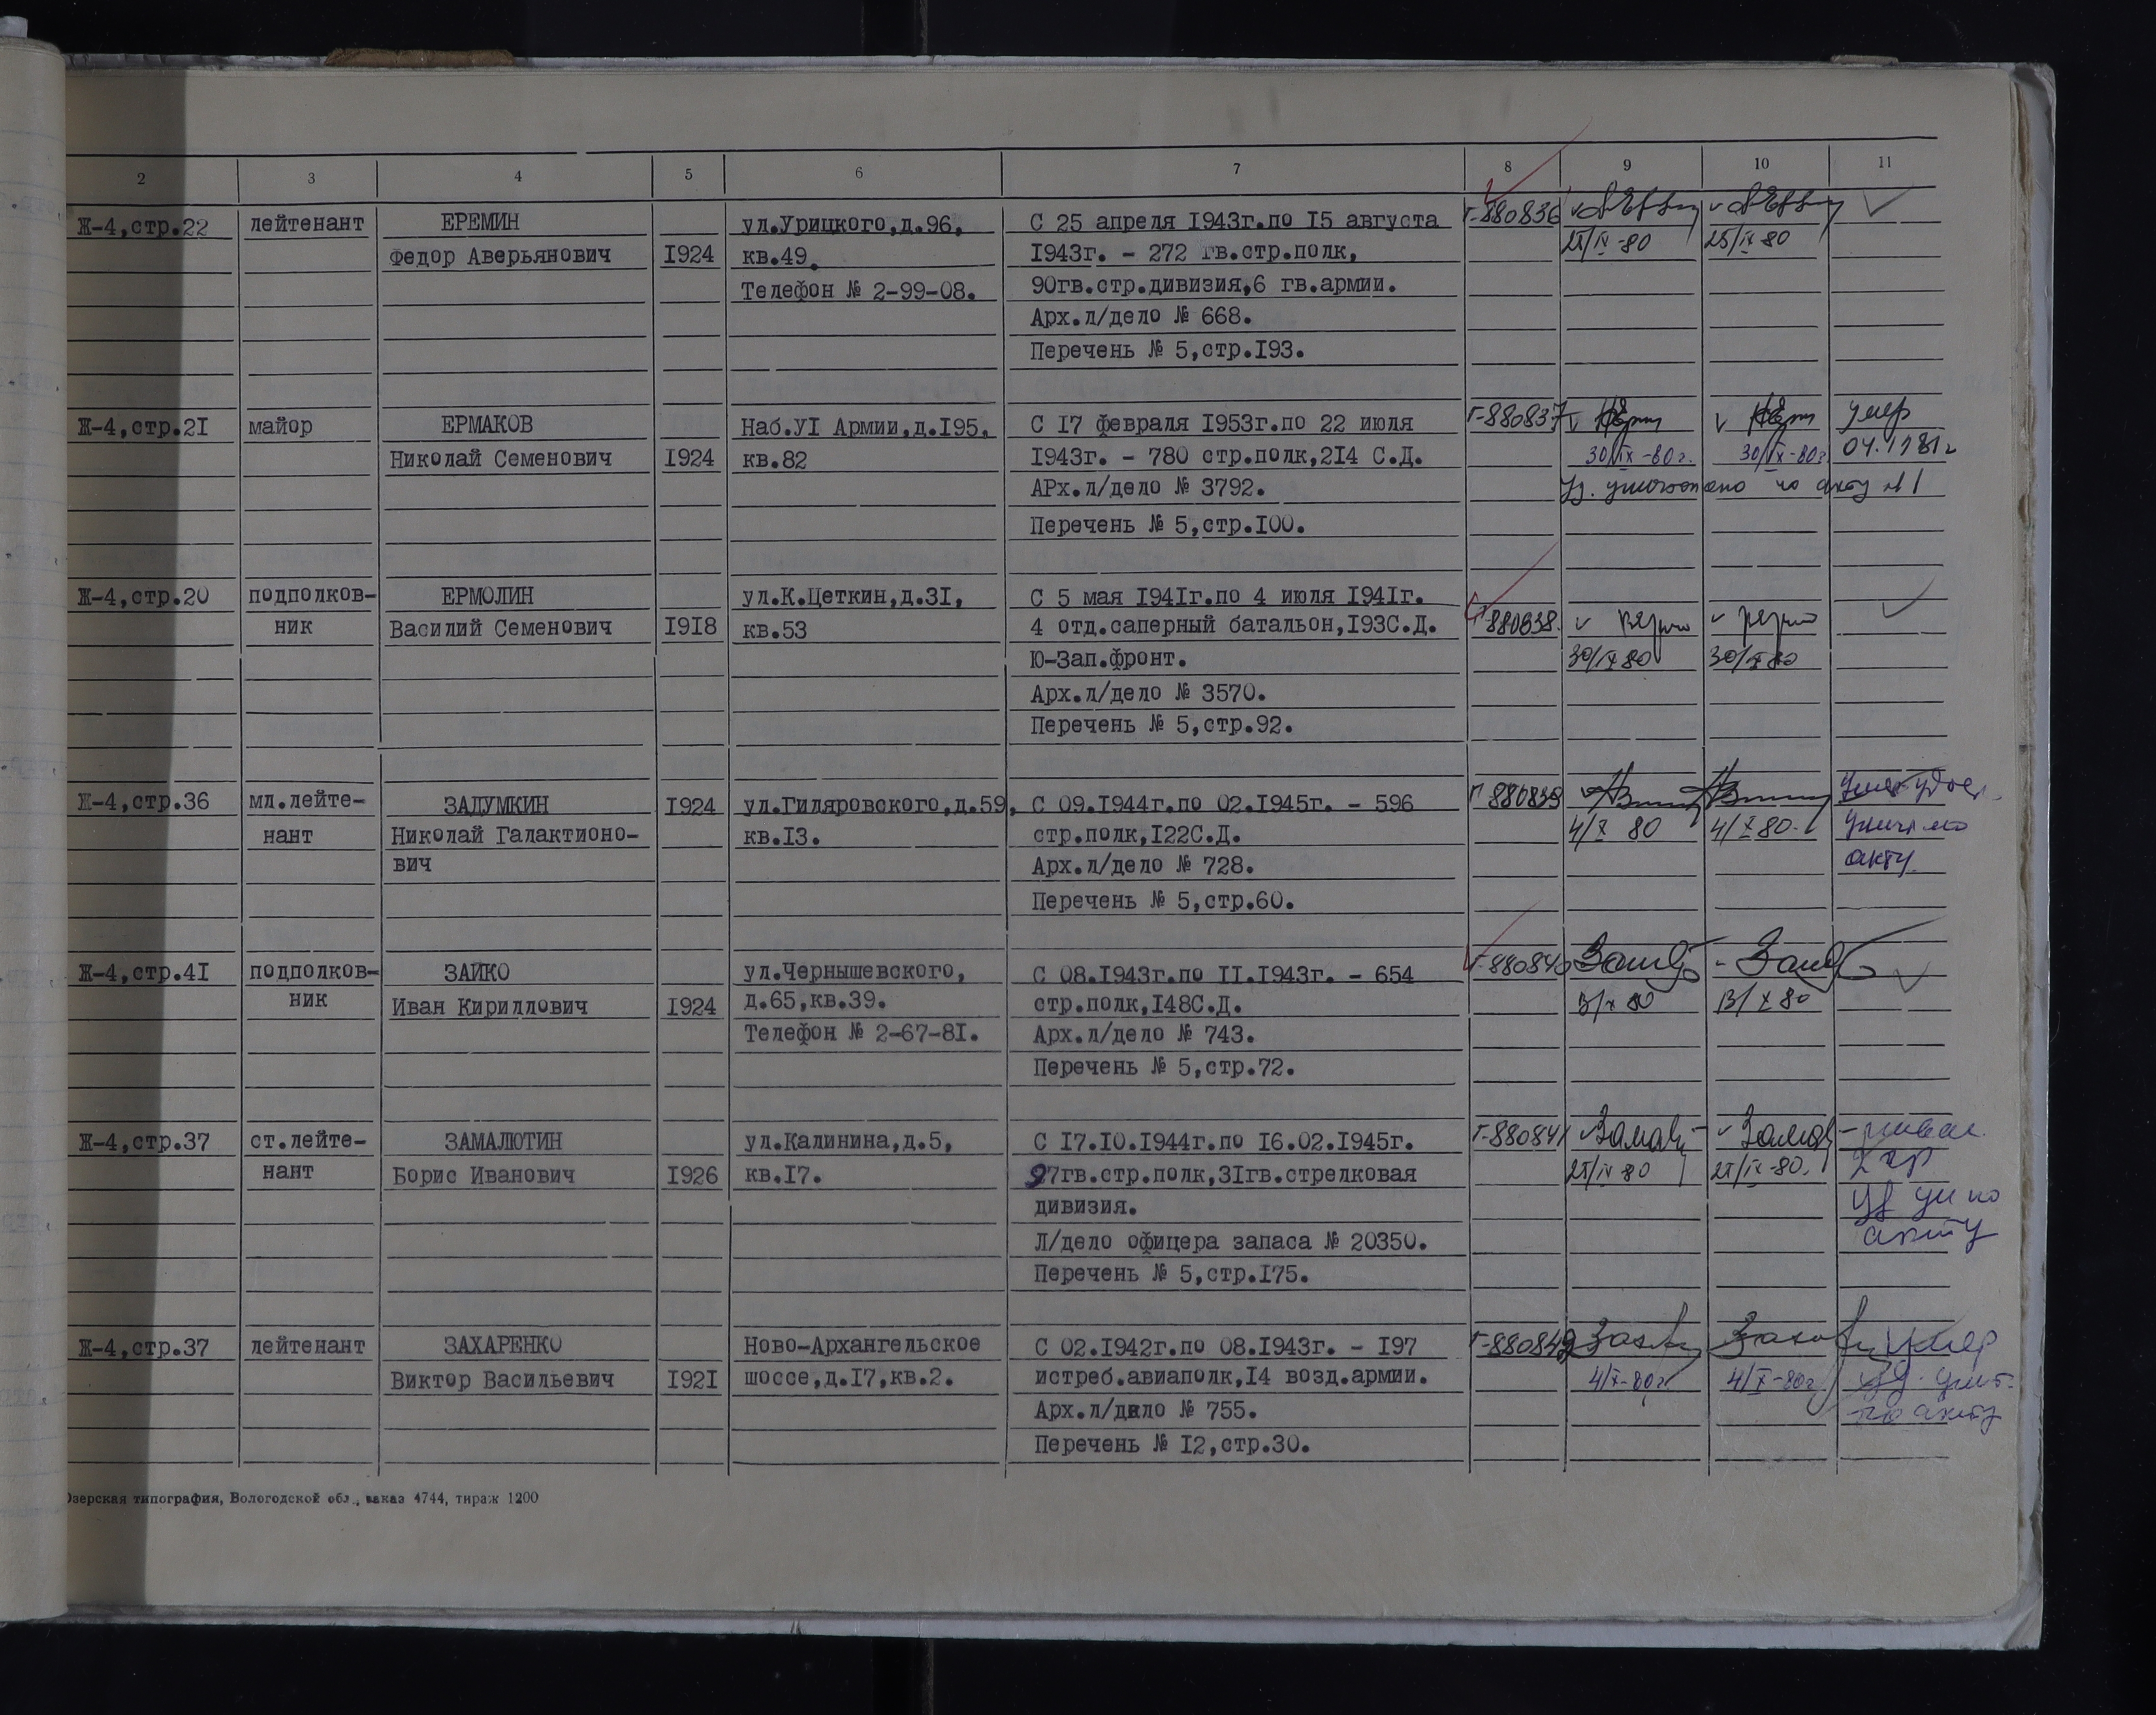 2 3 4 5 6 7 8 9 10 11
Ж-4,стр.22 лейтенант ЕРЕМИН ул.Урицкого,д.96, С 25 апреля I943г.по I5 августа Г-880836
Федор Аверьянович I924 кв.49. I943г. – 272 гв.стр.полк, 25/IX-80 25/IX 80
Телефон № 2-99-08. 90гв.стр.дивизия,6 гв.армии.
Арх.л/дело № 668.
Перечень № 5,стр.I93.
Ж-4,стр.2I майор ЕРМАКОВ Наб.УI Армии,д.I95, С I7 февраля I953г.по 22 июля Г-880837 умер
Николай Семенович I924 кв.82 I943г. – 780 стр.полк,2I4 С.Д. 30/IX-80г. 30/IX-80г 04.1981г
АРх.л/дело № 3792. уд. уничтожено по акту №1
Перечень № 5,стр.I00.
Ж-4,стр.20 подполков- ЕРМОЛИН ул.К.Цеткин,д.3I, С 5 мая I94Iг.по 4 июля I94Iг.
ник Василий Семенович I9I8 кв.53 4 отд.саперный батальон,I93С.Д. Г-880838.
Ю-Зап.фронт. 30/IX 80 30/IX 80
Арх.л/дело № 3570.
Перечень № 5,стр.92.
Ж-4,стр.36 мл.лейте- ЗАДУМКИН I924 ул.Гиляровского,д.59, С 09.I944г.по 02.I945г. – 596 Г 880839 удос.
нант Николай Галактионо- кв.I3. стр.полк,I22С.Д. 4/X 80 4/X 80. по
вич Арх.л/дело № 728. акту.
Перечень № 5,стр.60.
Ж-4,стр.4I подполков- ЗАЙКО ул.Чернышевского, С 08.I943г.по II.I943г. – 654 Г-880840
ник Иван Кириллович I924 д.65,кв.39. стр.полк,I48С.Д. 13/X 80
Телефон № 2-67-8I. Арх.л/дело № 743.
Перечень № 5,стр.72.
Ж-4,стр.37 ст.лейте- ЗАМАЛЮТИН ул.Калинина,д.5, С I7.I0.I944г.по I6.02.I945г. Г-880841
нант Борис Иванович I926 кв.I7. 97гв.стр.полк,3Iгв.стрелковая 25/IX 80 25/IX-80.
дивизия. по
Л/дело офицера запаса № 20350. акту
Перечень № 5,стр.I75.
Ж-4,стр.37 лейтенант ЗАХАРЕНКО Ново-Архангельское С 02.I942г.по 08.I943г. – I97 Г-880842 умер
Виктор Васильевич I92I шоссе,д.I7,кв.2. истреб.авиаполк,I4 возд.армии. 4/X-80г. 4/X-80г уд. унич.
Арх.л/дкло № 755. по акту
Перечень № I2,стр.30.
Озерская типография, Вологодской обл., заказ 4744, тираж 1200